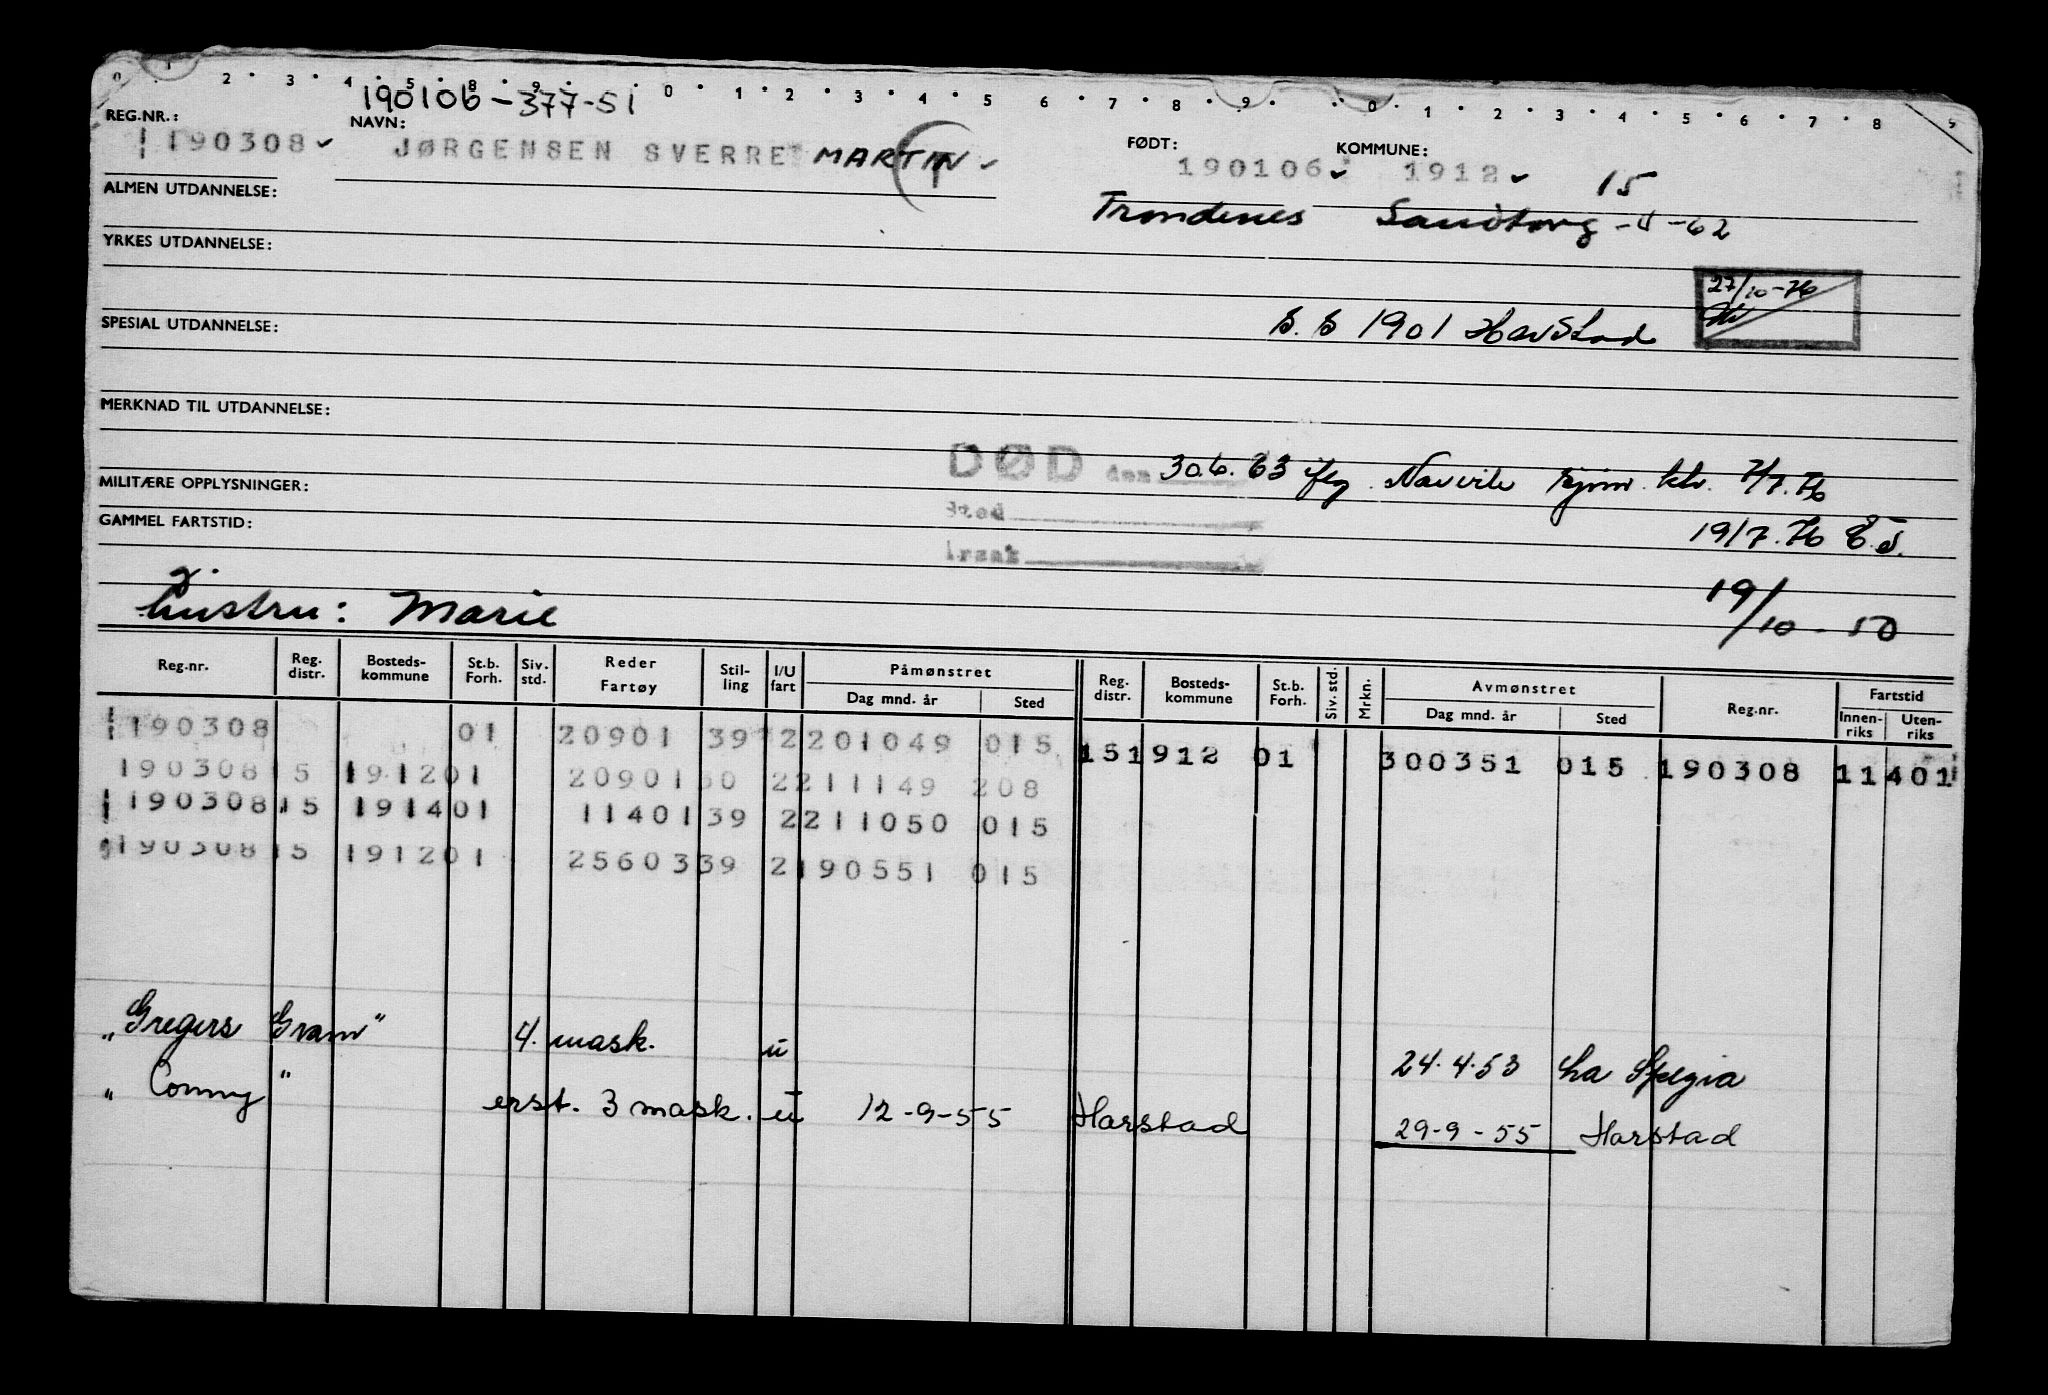 0 1 2 3 4 5 8 9 0 1 2 3 4 5 6 7 8 9 0 1 2 3 4 5 6 7 8 9
190106-377-51
REG.NR.: NAVN: FØDT: KOMMUNE:
190308 JØRGENSEN SVERRE MARTIN 190106 1912 15
ALMEN UTDANNELSE: Trondenes Sandtorg -4-62
YRKES UTDANNELSE:
27/10-76
SPESIAL UTDANNELSE: 1901 Harstad
MERKNAD TIL UTDANNELSE:
DØD den 30.6.63 ifg. Navile 7/7.76
MILITÆRE OPPLYSNINGER:
Sted
GAMMEL FARTSTID: 19/7.76 E.S.
Årsak
Hustru: Marie 19/10-50
Reg.nr. Reg. distr. Bosteds-kommune St.b. Forh. Siv. std. Reder Fartøy Stil-ling I/U fart Påmønstret Dag mnd. år Sted Reg. distr. Bosteds-kommune St.b. Forh. Siv. std. Mrkn. Avmønstret Dag mnd. år Sted Reg.nr. Fartstid Innen-riks Uten-riks
190308 01 20901 39 2 201049 015 15 1912 01 300351 015 190308 11 401
190308 15 1912 01 20901 30 2 211149 208
190308 15 1914 01 11401 39 2 211050 015
190308 15 1912 01 25603 39 2 190551 015
"Gregers Gram" 4. mask. u 24.4.53 La Spezia
"Conny" erst. 3 mask. u 12-9-55 Harstad 29-9-55 Harstad